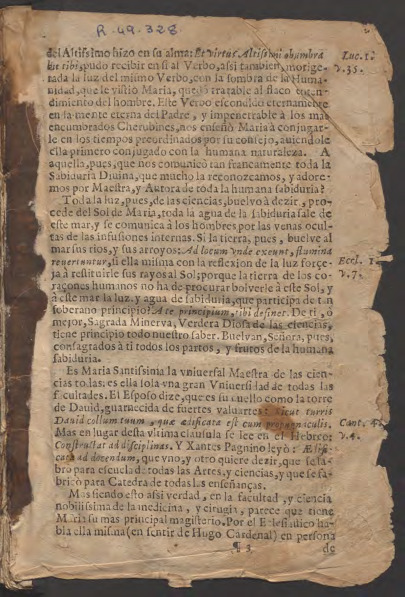 R-49-328
del Altissimo hizo en su alma: Et virtus Altissimi obumbra
bit tibi, pudo recibir en si al Verbo, assi tambien, mitige-
rada la luz del mismo Verbo, con la sombra de la Huma-
nidad, que le vistio Maria, quedó tratable al flaco enten-
dimiento del hombre. Este Verbo escondido eternamente
en la mente eterna del Padre, y impenetrable à los mas
encumbrados Cherubines, nos enseñò Maria à conjugar-
le en los tiempos preordinados por su consejo, aviendole
ella primero conjugado con la humana naturaleza. A
aquella, pues, que nos comunicò tan francamente toda la
Sabiduria Divina, que mucho la reconozcamos, y adore-
mos por Maestra, y Autora de toda la humana sabiduria?
Toda la luz, pues, de las ciencias, buelvo à dezir, pro-
cede del Sol de Maria, toda la agua de la sabiduria sale de
este mar, y se comunica à los hombres por las venas ocul-
tas de las infusiones internas. Si la tierra, pues, buelve al
mar sus rios, y sus arroyos: Ad locum vnde exeunt, flumina
revertuntur, si ella misma con la reflexion de la luz forçe-
ja à restituirle sus rayos al Sol; porque la tierra de los co-
raçones humanos no ha de procurar bolverle à este Sol, y
à este mar la luz, y agua de sabiduria, que participa de tan
soberano principio? A te principium, tibi desinet. De ti, o
mejor, Sagrada Minerva, Verdera Diosa de las ciencias,
tiene principio todo nuestro saber. Buelvan, Señora, pues,
consagrados à ti todos los partos, y frutos de la humana
sabiduria.
Es Maria Santissima la vniversal Maestra de las cien-
cias todas: es ella sola vna gran Vniversidad de todas las
facultades. El Esposo dize, que es su cuello como la torre
de David, guarnecida de fuertes valuartes: Sicut turris
David collum tuum, quæ ædificata est cum propugnaculis.
Mas en lugar desta vltima clausula se lee en el Hebreo:
Constructa ad disciplinas. Y Xantes Pagnino leyò: Ædifi-
cata ad docendum, que vno, y otro quiere dezir, que se la-
bro para escuela de todas las Artes, y ciencias, y que se fa-
bricò para Catedra de todas las enseñanças.
Mas siendo esto assi verdad, en la facultad, y ciencia
nobilissima de la medicina, y cirugia, parece que tiene
Maria su mas principal magisterio. Por el Eclesiastico ha-
bla ella misma (en sentir de Hugo Cardenal) en persona
¶ 3 de
Luc. 1.
v. 35.
Eccl. 1.
v. 7.
Cant. 4.
v. 4.